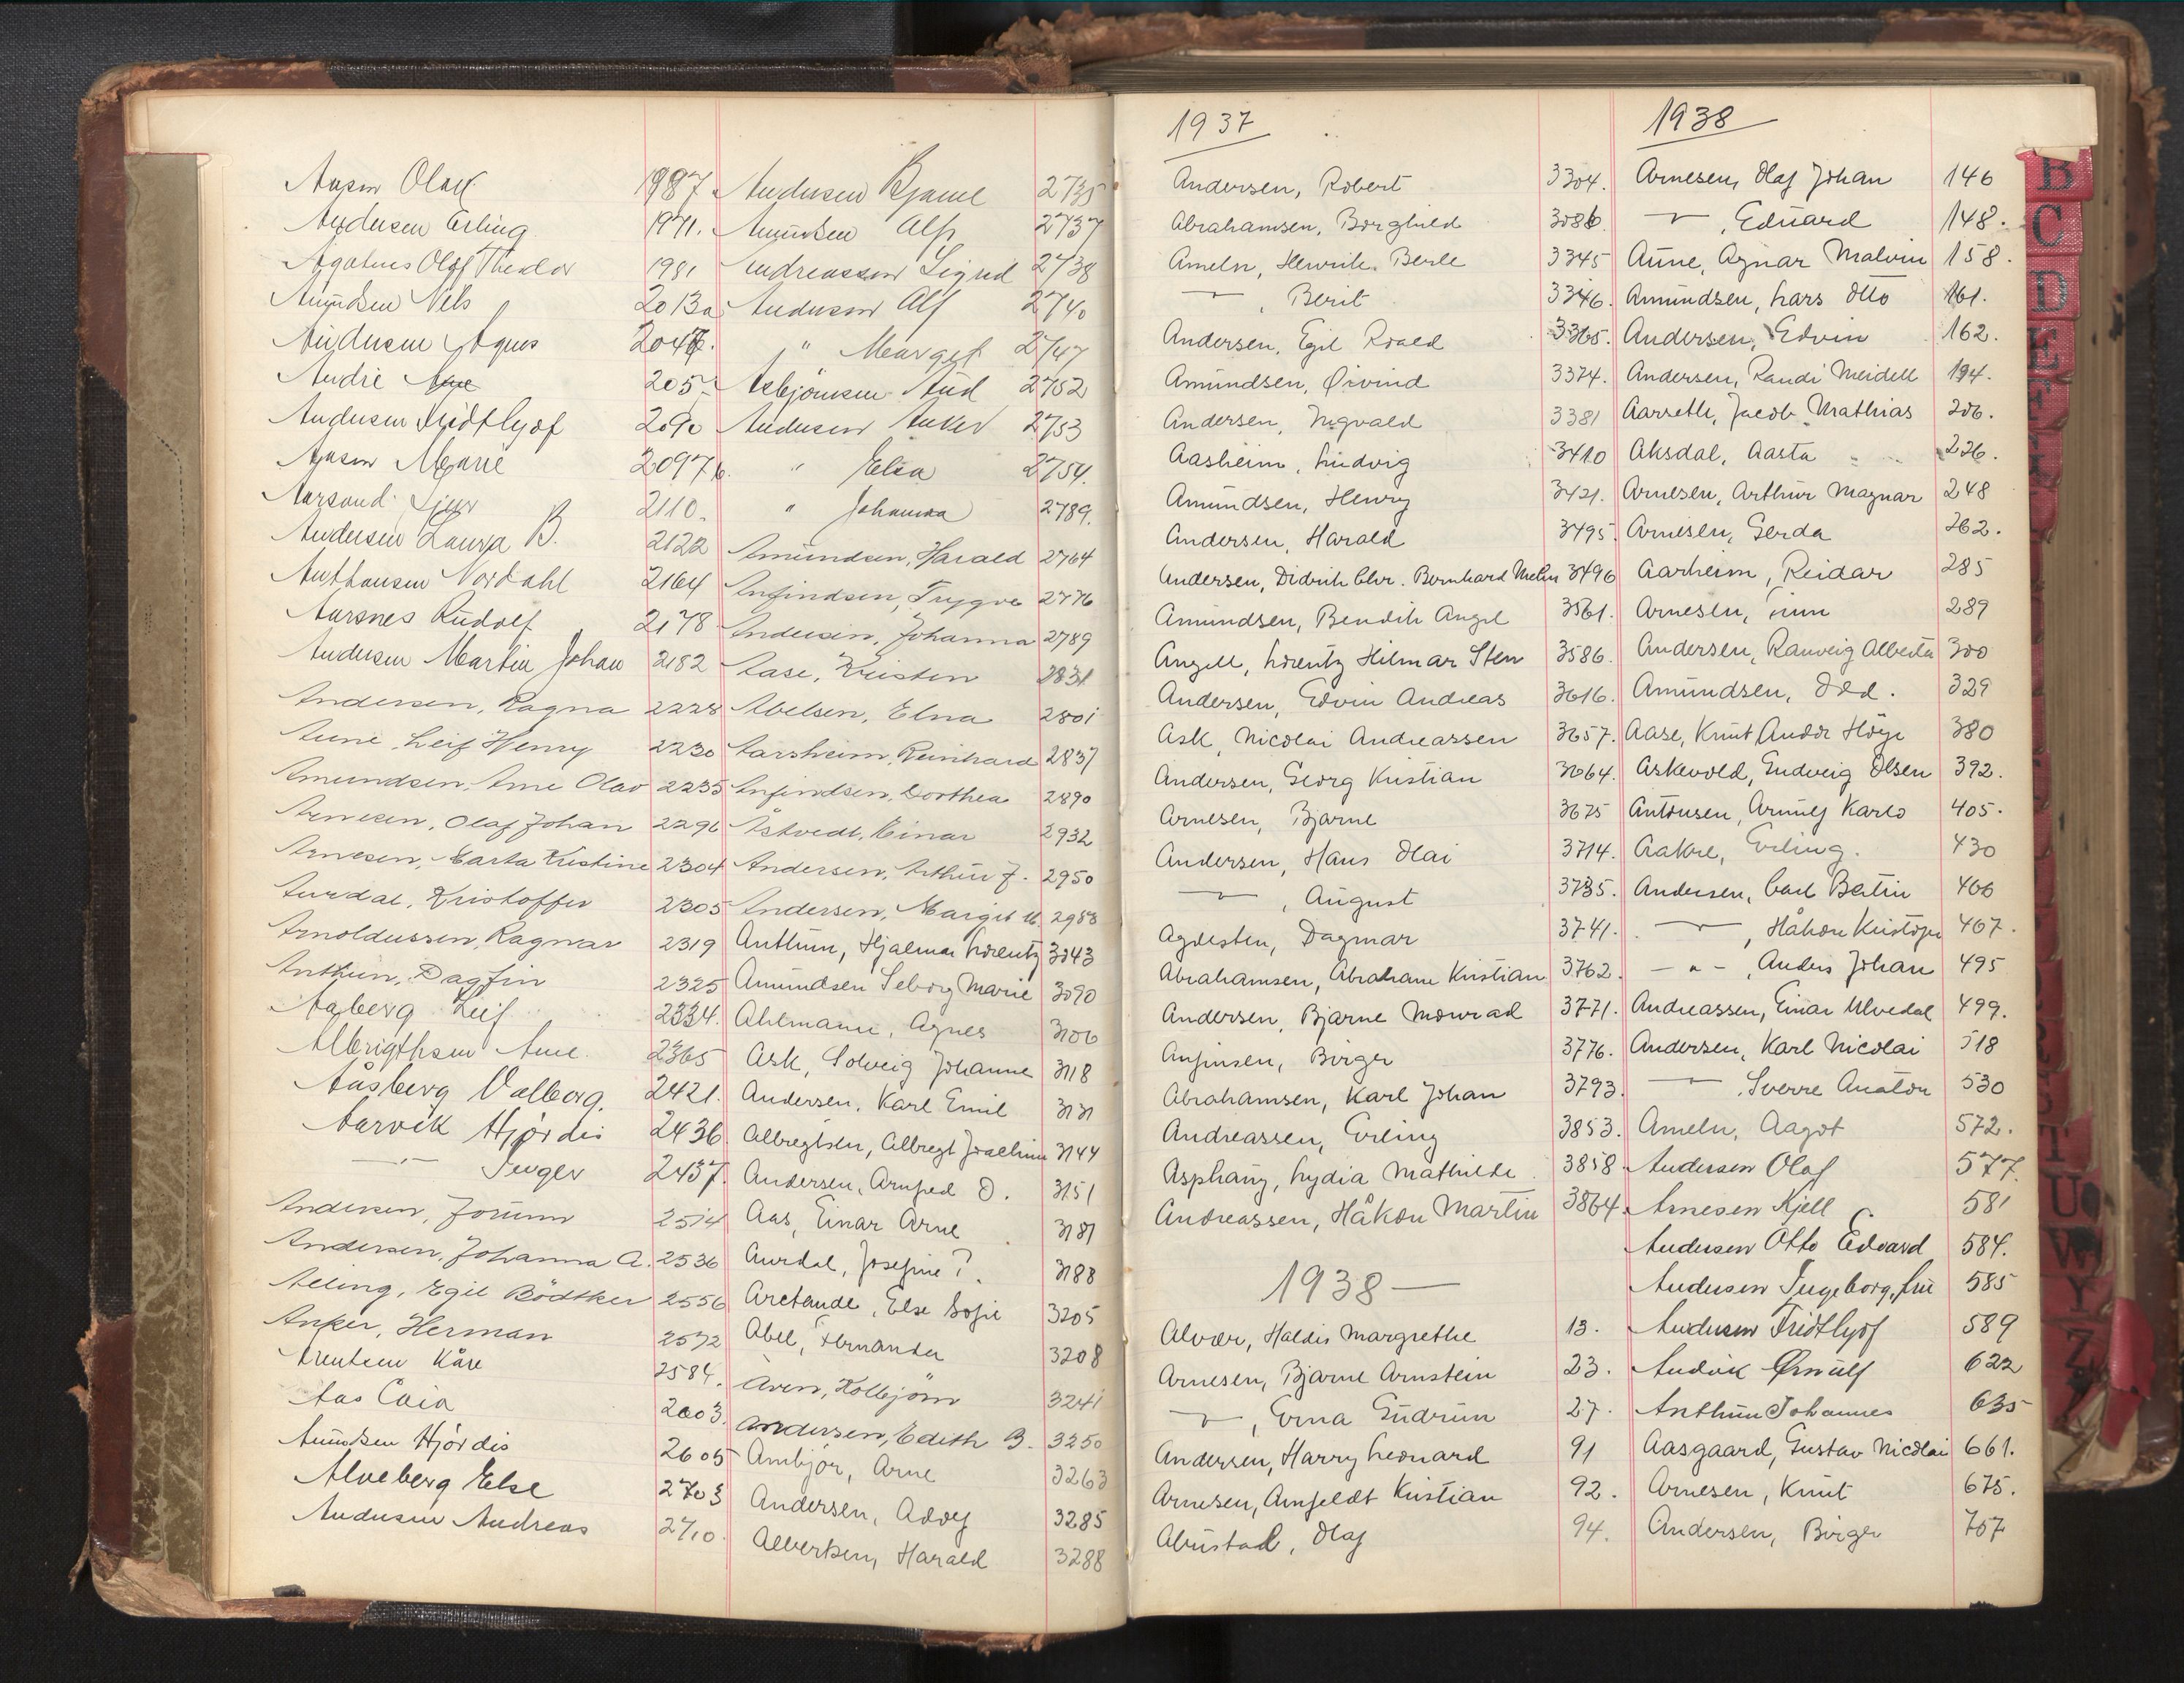 Aasen Olav 1987.
Andersen Erling 1971.
Olaf Theodor 1981
Amundsen Nels 2013a
Andersen Agnes
Andre 205
Andersen Fridtlyof 2090
Aasen Marie 2097b.
Aarsand 2110.
Andersen Laura B. 2122
Anthonsen Nordahl 2164
Aarsnes Rudolf 2178
Andersen Martin Johan 2182
Andersen, Ragna 2228
Aune Leif Henry 2230
Amundsen, Arne Olav 2235
Arnesen, Olaf Johan 2296
Arnesen, Marta Kristine 2304
Aurdal, Kristoffer 2305
Arnoldussen, Ragnar 2319
Anthun, Dagfin 2325
Aaberg Leif 2334.
Albrigthsen Arne. 2365
Aasberg Valborg. 2421.
Aarvik Hjördis 2436.
—"— Inger 2437.
Andersen, Jorunn 2514
Andersen, Johanna A. 2536
Alling, Egil Bödtker 2556
Anker, Herman 2572
Arentsen Kåre 2584.
Aas Caia 2603.
Amundsen Hjördis 2605
Alveberg Else 2703
Andersen Andreas 2710.
Andersen Bjarne 2735
Amundsen Alf 2737
Andreassen Sigrid 2738
Andersen Alf 2740
" Margit 2747
Asbjörnsen Aud 2752
Andersen Anker 2753
" Elsa 2754.
" Johanna 2789.
Amundsen, Harald 2764
Anfindsen, Trygve 2776
Andersen, Johanna 2789
Aase, Kristen 2831
Abelsen, Elna 2801
Aarsheim, Reinhard 2837
Anfindsen, Dorthea 2890
Åstvedt, Einar 2932
Andersen, Arthur J. 2950
Andersen, Margit M. 2988
Anthun, Hjalmar Lorentz 3043
Amundsen Seborg Marie 3090
Ahlmann, Agnes 3106
Ask, Solveig Johanne 3118
Andersen, Karl Emil 3131
Albregtsen, Albregt Joachim 3144
Andersen, Arnfred O. 3151
Aas, Einar Arne 3181
Aurdal, Josefine T. 3188
Aretande, Else Sofie 3205
Abel, Fernanda 3208
Aven, Kolbjörn 3241
Andersen, Edith B. 3250
Ambjör, Arne 3263
Andersen, Adolf 3285
Albertsen, Harald 3288
1937
Andersen, Robert 3304.
Abrahamsen, Borghild 3086.
Ameln, Henrik Berle 3345
—"—, Berit 3346.
Andersen, Egil Roald 3365.
Amundsen, Øivind 3374.
Andersen, Ingvald 3381
Aasheim, Ludvig 3410
Amundsen, Henry 3421.
Andersen, Harald 3495.
Andersen, Didrik Chr. Bernhard Mehn 3496
Amundsen, Bendik Angel 3561.
Angell, Lorentz Hilmar Sten 3586.
Andersen, Edvin Andreas 3616.
Ask, Nicolai Andreassen 3657.
Andersen, Georg Kristian 3664.
Arnesen, Bjarne 3675
Andersen, Hans Olai 3714.
—"—, August 3735.
Agdesten, Dagmar 3741.
Abrahamsen, Abraham Kristian 3762.
Andersen, Bjarne Monrad 3771.
Anfinsen, Birger 3776.
Abrahamsen, Karl Johan 3793.
Andreassen, Erling 3853.
Asphaug, Lydia Mathilde 3858
Andreassen, Håkon Martin 3864.
1938—
Alvær, Haldis Margrethe 13.
Arnesen, Bjarne Arnstein 23.
—"—, Erna Gudrun 27.
Andersen, Harry Leonard 91
Arnesen, Arnfeldt Kristian 92.
Abustad, Olaf 94.
1938
Arnesen, Olaf Johan 146
—"—, Edvard 148.
Aune, Agnar Malvin 158.
Amundsen, Lars Otto 161.
Andersen, Edvin 162.
Andersen, Randi Meidell 194.
Aarseth, Jacob Mathias 206.
Aksdal, Aasta 226.
Arnesen, Arthur Magnar 248
Arnesen, Gerda 262.
Aarheim, Reidar 285
Arnesen, Finn 289
Andersen, Ranveig Alberta 300
Amundsen, Odd. 329
Aase, Knut Andor Höye 380
Askevold, Gudveig Olsen 392.
Antonsen, Arnulf Karlo 405.
Aakre, Erling. 430
Andersen, Carl Bertin 466
—"—, Håkon Kristofer 467.
—"—, Anders Johan 495
Andreassen, Einar Ulvedal 499.
Andersen, Karl Nicolai 518
—"—, Sverre Anaton 530
Ameln, Aagot 572.
Andersen Olaf 577.
Arnesen Kjell 581
Andersen Otto Edvard 584.
Andersen Ingeborg, fru 585
Andersen Fridtlyof 589
Andvik Ørnulf 622
Anthun Johannes 635
Aasgaard, Gustav Nicolai 661.
Arnesen, Knut 675.
Andersen, Birger 707
B
C
D
E
F
T
U
W
Y
Z